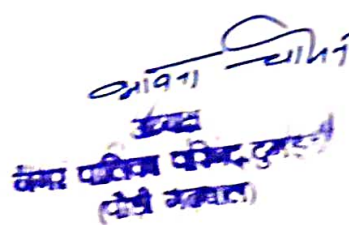 भावना चौहान
अध्यक्ष
नगर पालिका परिषद, दुगड्डा
(पौड़ी गढ़वाल)